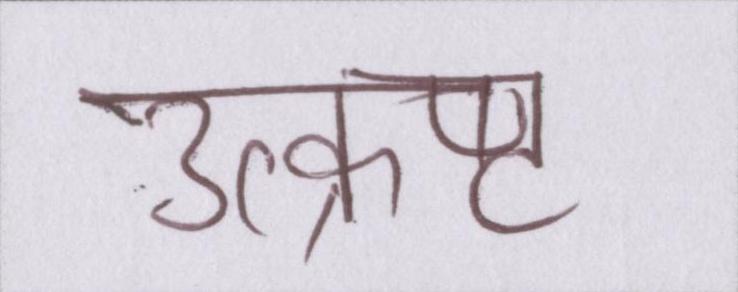 उत्क्रष्ट